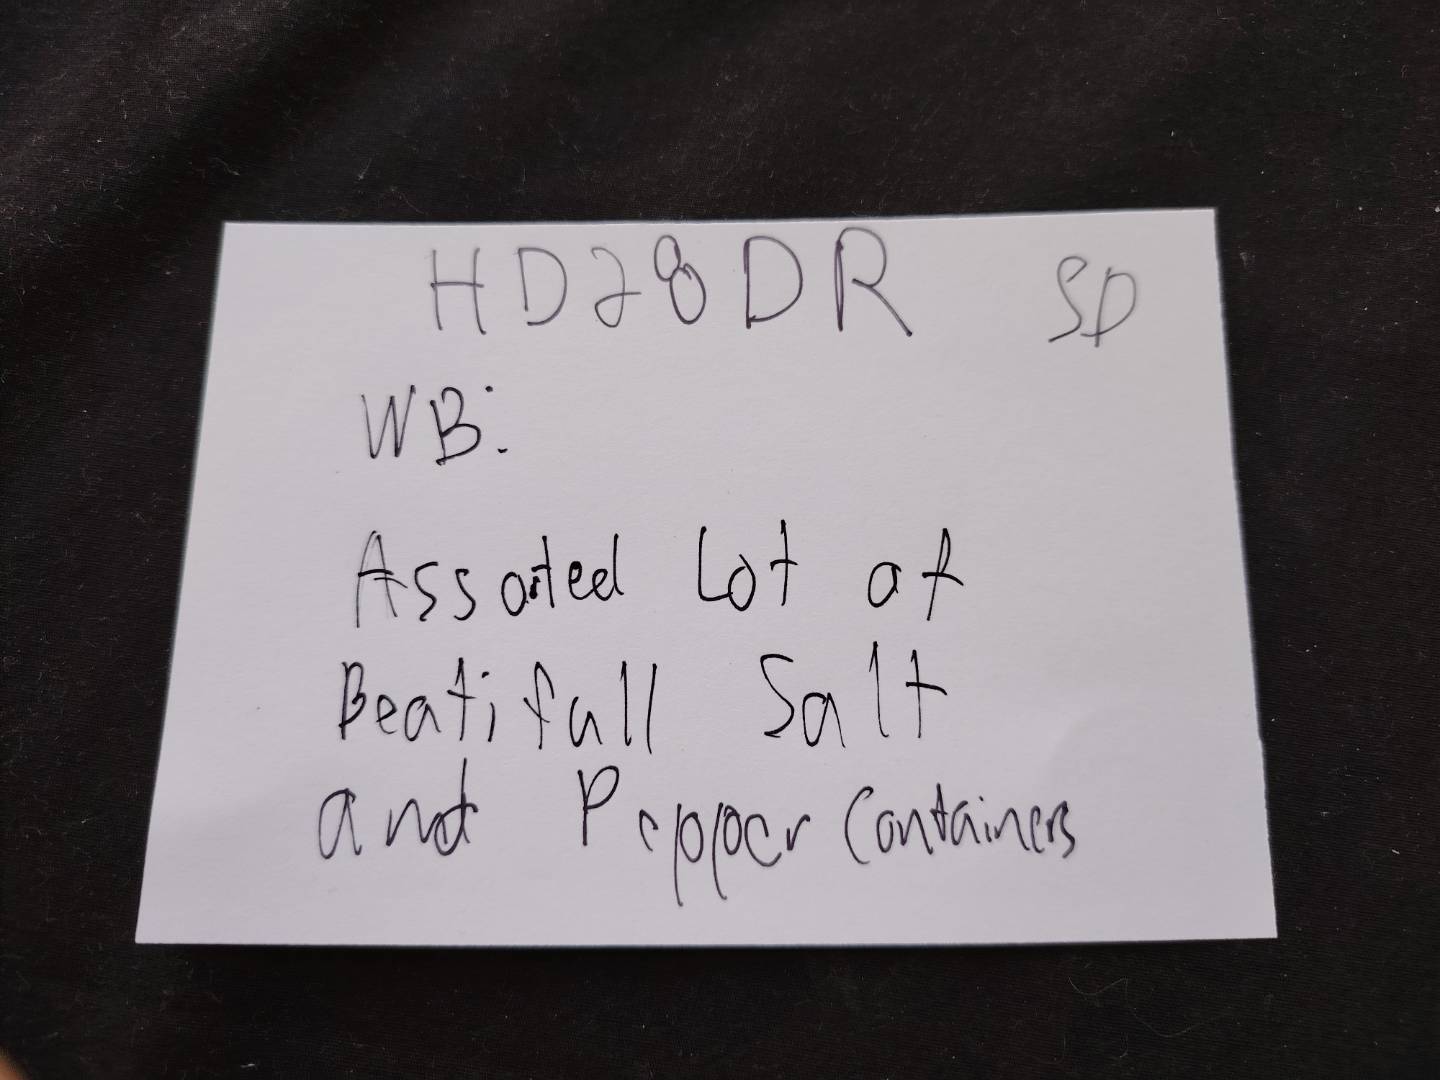 HD28DR SD
WB:
Assorted Lot of
Beatifull Salt
and Pepper Containers